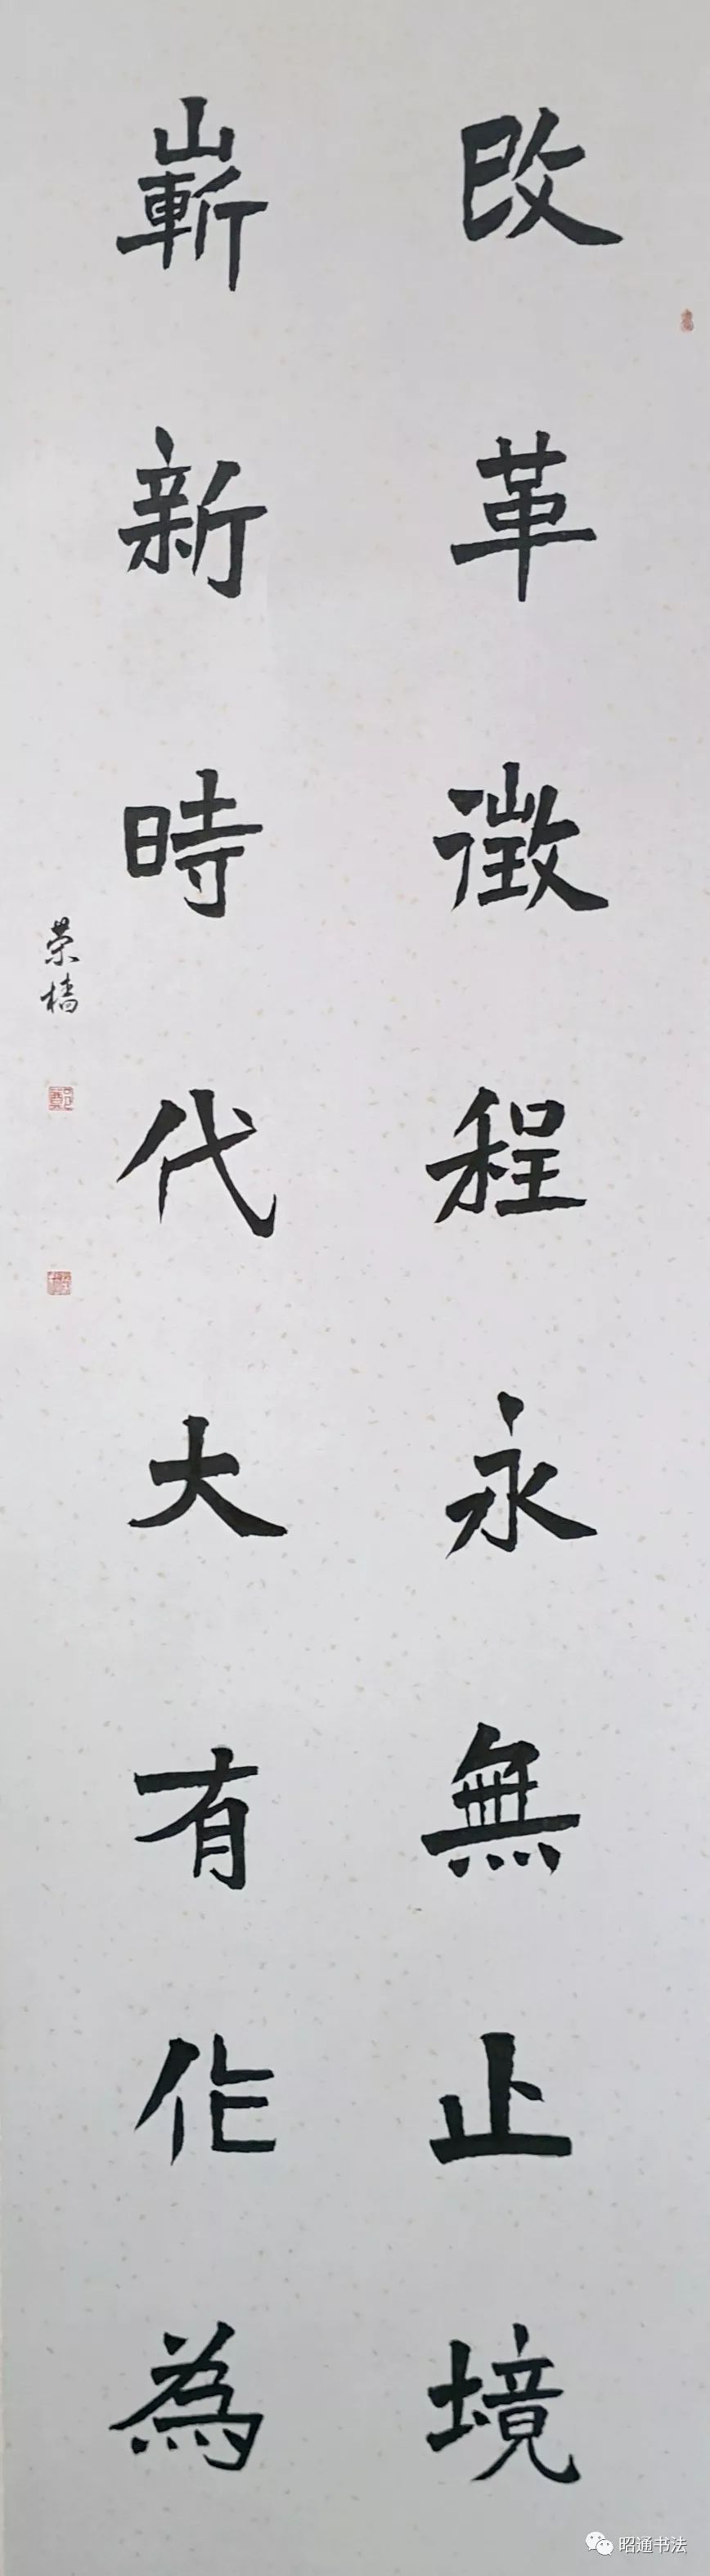 改革徵程永無止境
嶄新時代大有作為
荣樯
昭通书法